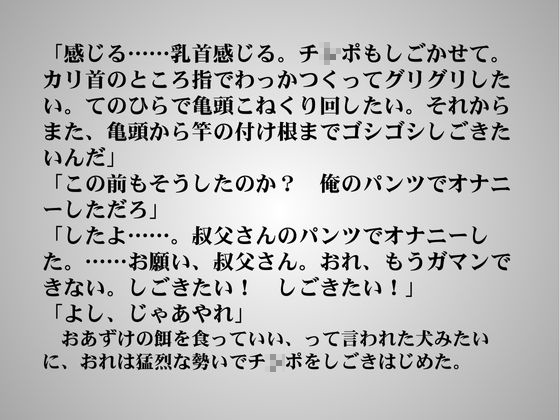 「感じる……乳首感じる。チポもしごかせて。
カリ首のところ指でわっかつくってグリグリした
い。てのひらで亀頭こねくり回したい。それから
また、亀頭から竿の付け根までゴシゴシしごきた
いんだ」
「この前もそうしたのか？　俺のパンツでオナニ
ーしただろ」
「したよ……。叔父さんのパンツでオナニーし
た。……お願い、叔父さん。おれ、もうガマンで
きない。しごきたい！　しごきたい！」
「よし、じゃあやれ」
　おあずけの餌を食っていい、って言われた犬みたい
に、おれは猛烈な勢いでチポをしごきはじめた。